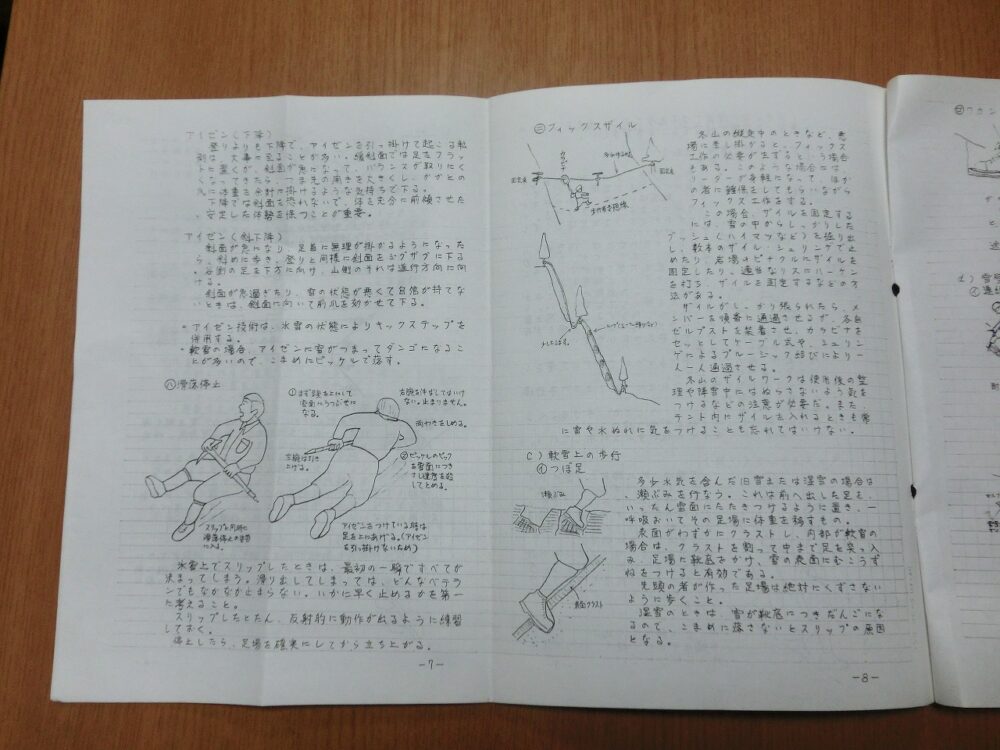 アイゼン(下降)
登りよりも下降で、アイゼンを引っ掛けて起こる転
倒は、大事に至ることが多い。緩斜面では足をフラッ
トに置くが、斜面が急になって、バランスが取りにく
くなってきたら、一歩先の開きを大きくし、かかとの
爪に体重を余計に掛けるような気持ちで下る。
下降では斜面を恐れないで、体を充分に前傾させた
安定した体勢を保つことが重要。
アイゼン(斜下降)
斜面が急になり、足首に無理が掛かるようになった
ら、斜めに歩き、登りと同様に斜面をジグザグに下る
。谷側の足を下方に向け、山側のそれは進行方向に向
ける。
斜面が急過ぎたり、雪の状態が悪くて自信が持てな
いときは、斜面に向いて前爪を効かせて下る。
・アイゼン技術は、氷雪の状態によりキックステップを
併用する。
・軟雪の場合、アイゼンに雪がつまってダンゴになるこ
とが多いので、こまめにピッケルで落す。
㋩滑落停止
①まず頭を上にして
雪面にうつぶせに
なる。
右腕を伸ばしてはいけ
ない。止まりません。
両わきをしめる。
左腕は引き
上げる。
②ピッケルのピック
を雪面につき
さし速度を殺
してとめる。
スリップと同時に
滑落停止の姿勢
に入る。
アイゼンをつけている時は
足を上にあげる。(アイゼン
を引っ掛けないため)
氷雪上でスリップしたときは、最初の一瞬ですべてが
決まってしまう。滑り出してしまっては、どんなベテラ
ンでもなかなか止まらない。いかに早く止めるかを第一
に考えること。
スリップしたとたん、反射的に動作が出るように練習
しておく。
停止したら、足場を確実にしてから立ち上がる。
-7-
㊁フィックスザイル
固定点
固定点
カラビナ
冬山の縦走中のときなど、悪
場に差し掛かると、フィックス
工作の必要が生ずるという場合
もある。このような場合には、
リーダーが身軽になって、ほか
の者に確保をしてもらいながら
フィックス工作をする。
この場合、ザイルを固定する
には、雪の中からしっかりした
ブッシュ(ハイマツなど)を掘り出
し、数本のザイル・シュリンゲで止
めたり、岩場のピナクルにザイルを
固定したり、適当なリスにハーケン
を打ち、ザイルを固定するなどの方
法がある。
ザイルがしっかり張られたら、メ
ンバーを慎重に通過させるが、各自
ゼルブストを装着させ、カラビナを
セットしてケーブル式や、シュリン
ゲによるプルージック結びにより一
人一人通過させる。
冬山のザイルワークは使用後の整
理や降雪中にはぬらさないよう気を
つけるなどの注意が必要だ。また
テント内にザイルを入れるときも常
に雪や水ぬれに気をつけることも忘れてはいけない。
C)軟雪上の歩行
㋑つぼ足
瀬ぶみ
表面クラスト
多少水気を含んだ旧雪または湿雪の場合は
、瀬ぶみを行なう。これは前へ出した足を、
いったん雪面にたたきつけるように置き、一
呼吸おいてその足場に体重を移すもの。
表面がわずかにクラストし、内部が軟雪の
場合は、クラストを割って中まで足を突っ入
み、足場に靴底をかけ、雪の表面にむこうず
ねをつけると有効である。
先頭の者が作った足場は絶対にくずさない
ように歩くこと。
湿雪のときは、雪が靴底につきだんごにな
るので、こまめに落さないとスリップの原因
となる。
-8-